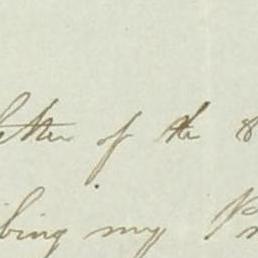 letter of the 8
ibing my P